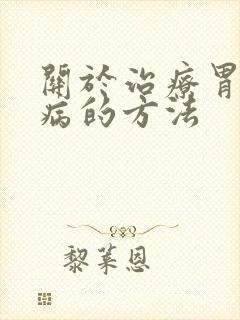 關於治療胃
病的方法
黎萊恩